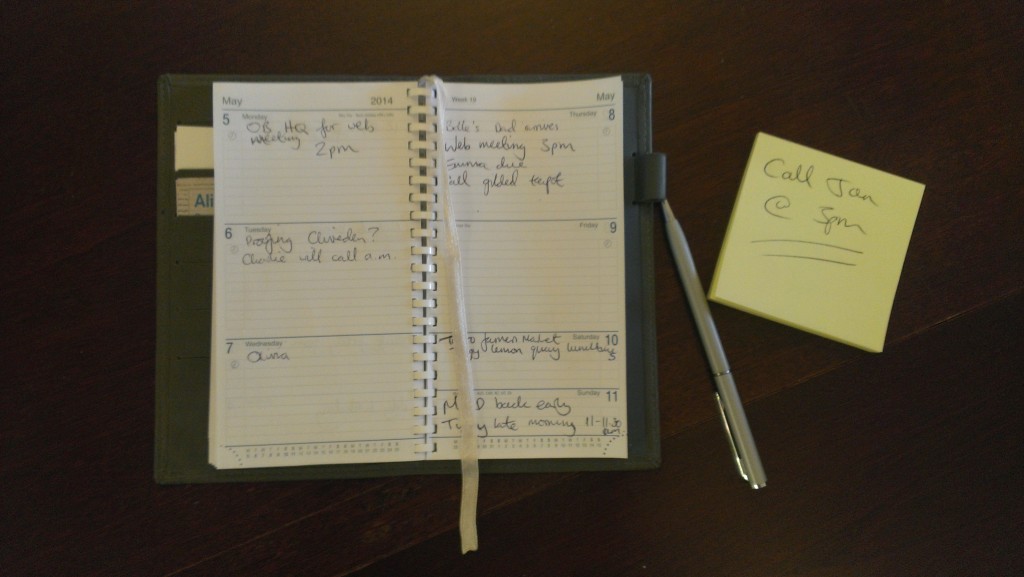 May 2014
5 Monday
OB HQ for web
meeting
2pm
6 Tuesday
Proofing Cliveden?
Charlie will call a.m.
7 Wednesday
Olivia
Week 19 May
Thursday 8
Dad arrives
Web meeting 3pm
Emma due
gilded teapot
Friday 9
Saturday 10
to farmers market
lemon quay
Sunday 11
back early
late morning 11-11.30
Ali
Call Jan
@ 3pm